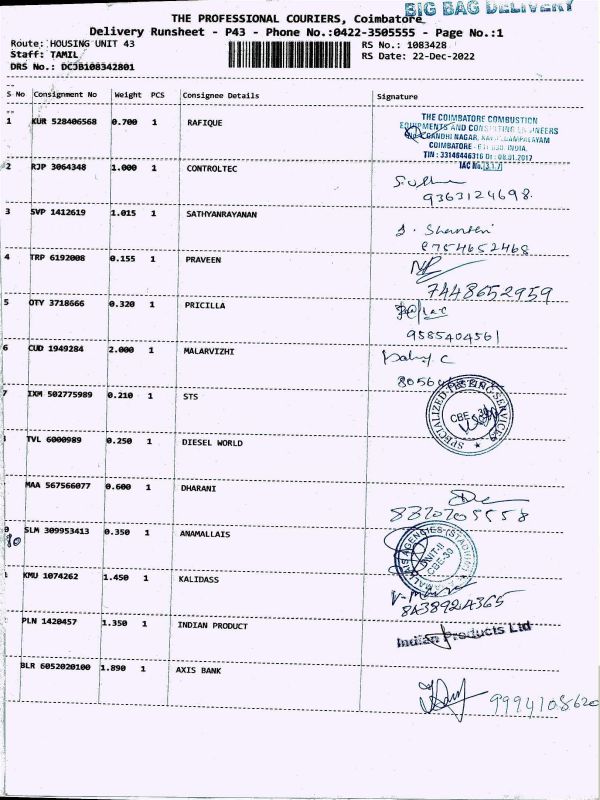 BIG BAG DELIVERY
THE PROFESSIONAL COURIERS, Coimbatore
Delivery Runsheet - P43 - Phone No.:0422-3505555 - Page No.:1
Route: HOUSING UNIT 43
RS No.: 1083428
Staff: TAMIL
RS Date: 22-Dec-2022
DRS No.: DCJB108342801
S No Consignment No Weight PCS Consignee Details Signature
1 KUR 528406568 0.700 1 RAFIQUE
THE COIMBATORE COMBUSTION
EQUIPMENTS AND CONSULTING ENGINEERS
GANDHI NAGAR,
COIMBATORE - INDIA.
TIN : 33146446316 Dt : 08.01.2017
2 RJP 3064348 1.000 1 CONTROLTEC
9363124698.
3 SVP 1412619 1.015 1 SATHYANRAYANAN
9754652468
4 TRP 6192008 0.155 1 PRAVEEN
7448652959
5 OTY 3718666 0.320 1 PRICILLA
9585404561
6 CUD 1949284 2.000 1 MALARVIZHI
7 IXM 502775989 0.210 1 STS
SPECIALIZED TESTING SERVICES
CBE - 30
TVL 6000989 0.250 1 DIESEL WORLD
MAA 567566077 0.600 1 DHARANI
SLM 309953413 0.350 1 ANAMALLAIS
UNIT-II
CBE-30
KMU 1074262 1.450 1 KALIDASS
PLN 1420457 1.350 1 INDIAN PRODUCT
Indian Products Ltd
BLR 6052020100 1.890 1 AXIS BANK
9994108620